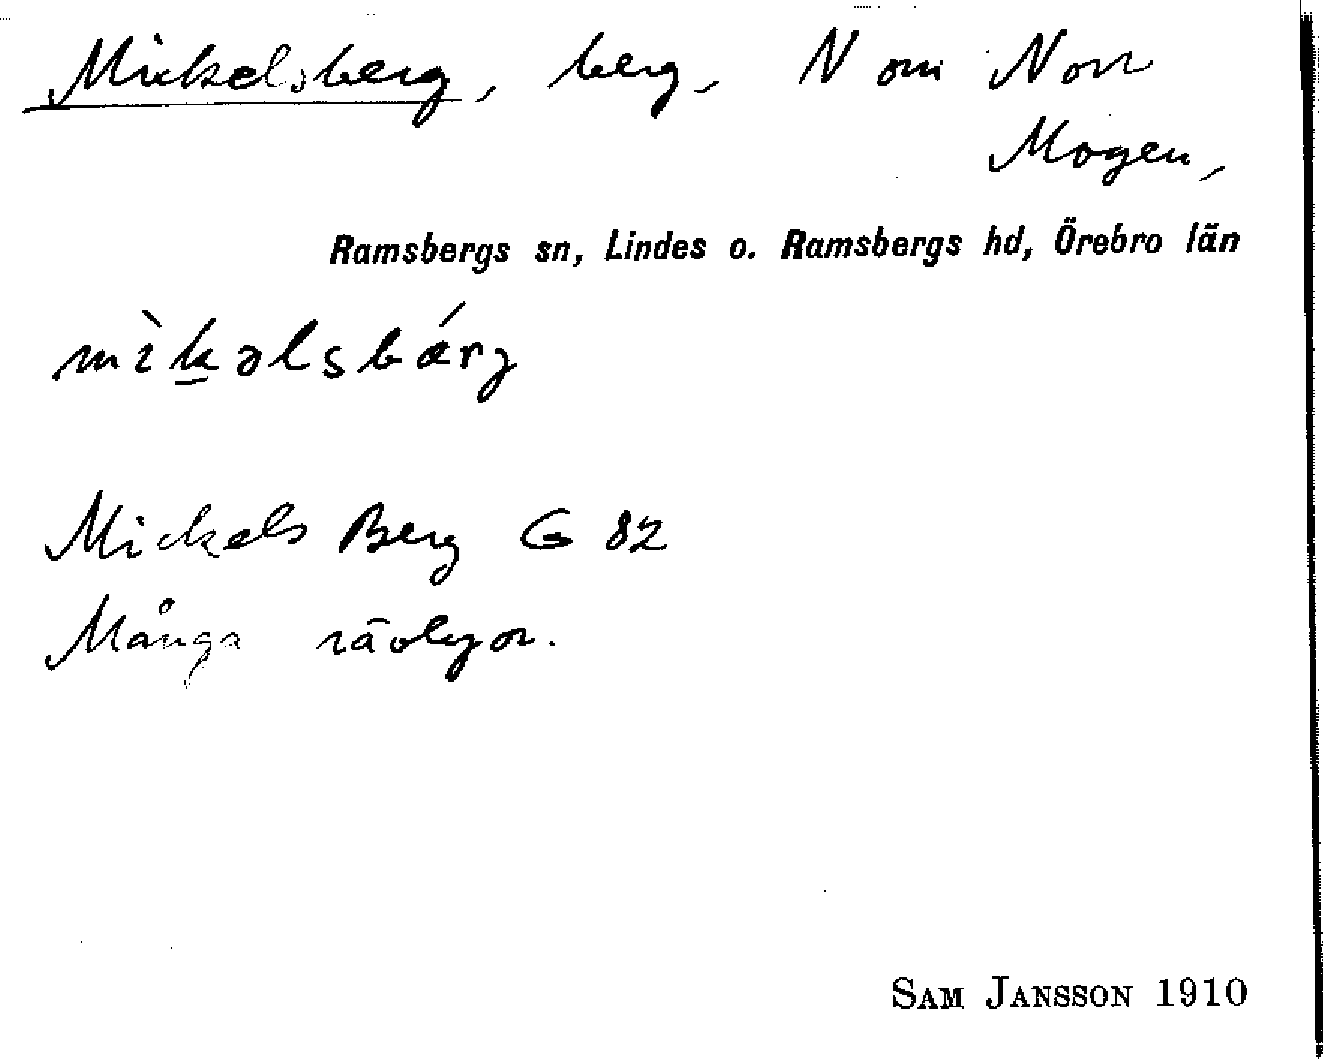 Mickelsberg, berg, N om Norr
Mogen,
Ramsbergs sn, Lindes o. Ramsbergs hd, Örebro län
mìkəlsbárg
Mickels Berg G 82
Många rävlyor.
SAM JANSSON 1910